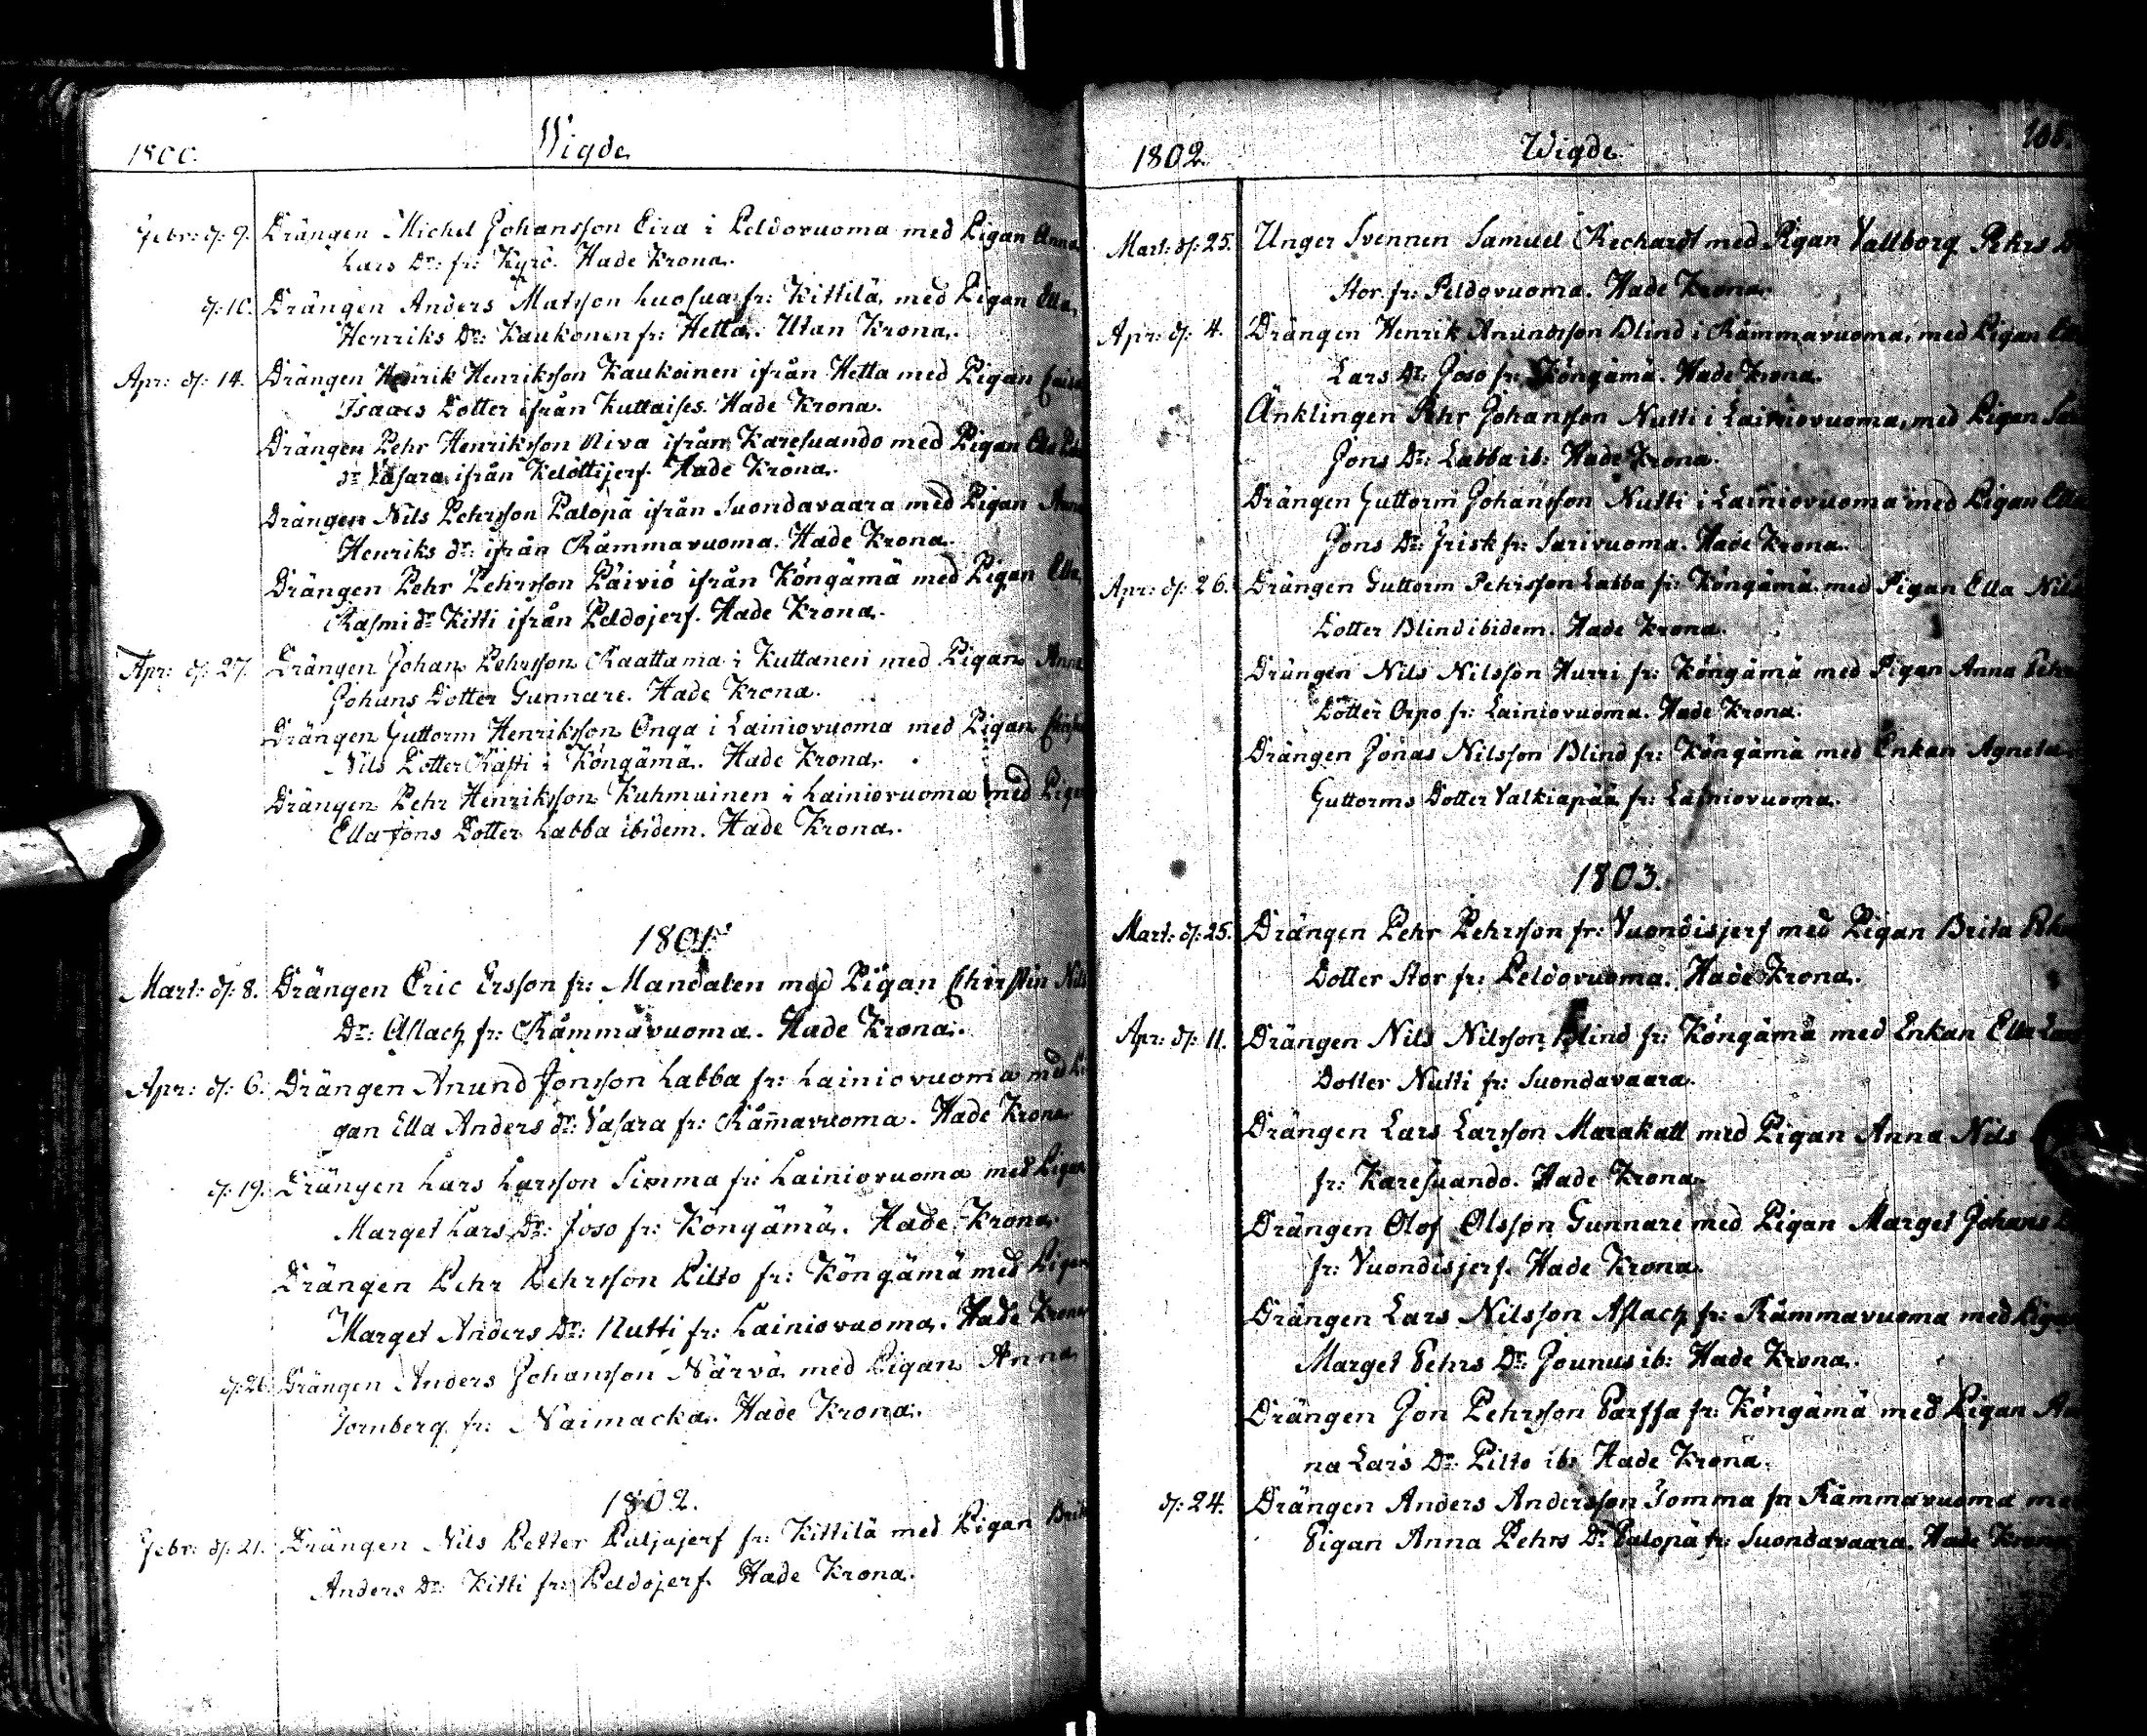 1800.
Wigde
Febr: d: 9. Drängen Michel Johansson Eira i Peldovuoma med Pigan Anna
Lars Dr: fr: Kyrö. Hade Krona.
d: 10. Drängen Anders Matsson Luosua fr: Kittilä, med Pigan Ella
Henriks Dr: Kaukonen fr: Hetta. Utan Krona.
Apr: d: 14. Drängen Henrik Henriksson Kaukoinen ifrån Hetta med Pigan
Isaacs Dotter ifrån Kuttaises. Hade Krona.
Drängen Pehr Henriksson Niva ifrån Karesuando med Pigan
dr Vasara ifrån Kelottijerf. Hade Krona.
Drängen Nils Pehrsson Palopä ifrån Suondavaara med Pigan Anna
Henriks dr: ifrån Råmmavuoma. Hade Krona.
Drängen Pehr Pehrsson Päiviö ifrån Köngämä med Pigan Ella
Rasmi dr Kitti ifrån Peldojerf. Hade Krona.
Apr: d: 27. Drängen Johan Pehrsson Raattama i Kuttanen med Pigan Anna
Johans Dotter Gunnare. Hade Krona.
Drängen Guttorm Henriksson Onga i Lainiovuoma med Pigan
Nils Dotter Rasti i Köngämä. Hade Krona.
Drängen Pehr Henriksson Kuhmuinen i Lainiovuoma med Pigan
Ella Jons Dotter Labba ibidem. Hade Krona.
1801.
Mart: d: 8. Drängen Eric Ersson fr: Mandalen med Pigan Christin Nils
Dr: Aslach fr: Råmmavuoma. Hade Krona.
Apr: d: 6. Drängen Anund Jonsson Labba fr: Lainiovuoma med Pi
gan Ella Anders dr: Vasara fr: Råm̄avuoma. Hade Krona
d: 19. Drängen Lars Larsson Simma fr: Lainiovuoma med Pigan
Marget Lars Dr: Joso fr: Köngämä. Hade Krona.
Drängen Pehr Pehrsson Pilto fr: Köngämä med Pigan
Marget Anders Dr: Nutti fr: Lainiovuoma. Hade Krona
d: 26. Drängen Anders Johansson Närvä med Pigan Anna
Tornberg fr: Naimacka. Hade Krona.
1802.
Febr: d: 21. Drängen Nils Petter Puljujerf fr: Kittilä med Pigan Brit
Anders Dr: Kitti fr: Peldojerf. Hade Krona.
1802.
Wigde
108.
Mart: d: 25. Unger Svennen Samuel Rechardt med Pigan Vallborg Pehrs D
Stor fr: Peldovuoma. Hade Krona.
Apr: d: 4. Drängen Henrik Anundsson Blind i Råmmavuoma, med Pigan
Lars Dr: Joso fr: Köngämä. Hade Krona.
Änklingen Pehr Johansson Nutti i Lainiovuoma, med Pigan
Jons Dr: Labba ib: Hade Krona.
Drängen Guttorm Johansson Nutti i Lainiovuoma med Pigan Ella
Jons Dr: Frisk fr: Sarivuoma. Hade Krona.
Apr: d: 26. Drängen Guttorm Pehrsson Labba fr: Köngämä med Pigan Ella Nils
Dotter Blind ibidem. Hade Krona.
Drängen Nils Nilsson Hurri fr: Köngämä med Pigan Anna Pehrs
Dotter Orpo fr: Lainiovuoma. Hade Krona.
Drängen Jonas Nilsson Blind fr: Köngämä med Enkan Agneta
Guttorms Dotter Valkiapää fr: Lainiovuoma.
1803.
Mart: d: 25. Drängen Pehr Pehrsson fr: Vuondisjerf med Pigan Brita Pehrs
Dotter Stor fr: Peldovuoma. Hade Krona.
Apr: d: 11. Drängen Nils Nilsson Blind fr: Köngämä med Enkan Ella Lars
Dotter Nutti fr: Suondavaara.
Drängen Lars Larsson Marakatt med Pigan Anna Nils
fr: Karesuando. Hade Krona.
Drängen Olof Olsson Gunnare med Pigan Marget Johans D
fr: Vuondisjerf. Hade Krona.
Drängen Lars Nilsson Aslach fr: Råmmavuoma med Pigan
Marget Pehrs Dr: Jounus ib: Hade Krona.
Drängen Jon Pehrsson Parffa fr: Köngämä med Pigan An
na Lars Dr: Pilto ib: Hade Krona.
d: 24. Drängen Anders Andersson Tomma fr: Råmmavuoma med
Pigan Anna Pehrs Dr: Palopä fr: Suondavaara. Hade Krona